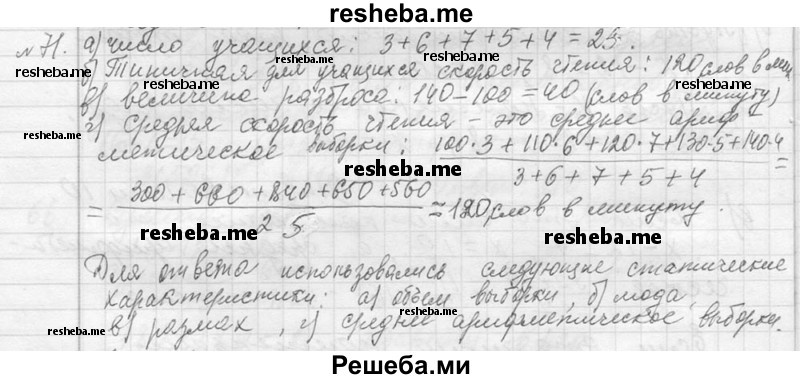 resheba.me
№71. а) число учащихся: 3+6+7+5+4=25.
б) Типичная для учащихся скорость чтения: 120 слов в мин
в) величина разброса: 140-100=40 (слов в минуту)
г) Средняя скорость чтения - это среднее ариф-
метическое выборки: 100·3+110·6+120·7+130·5+140·4
3+6+7+5+4 =
resheba.me
= 300+660+840+650+560
25
= 120 слов в минуту.
resheba.me resheba.me
Для ответа использовались следующие статические
характеристики: а) объём выборки, б) мода,
в) размах, г) среднее арифметическое выборки.
resheba.me resheba.me
Решеба.ми